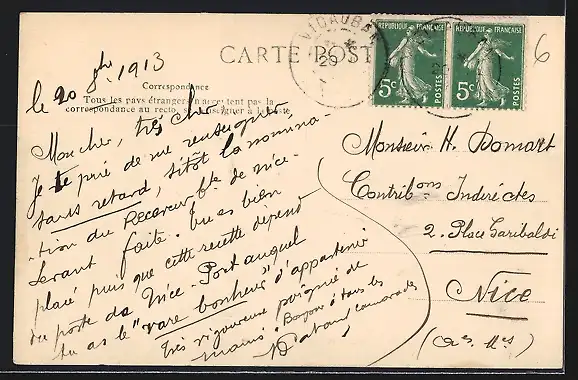 VIDAUBAN
20
RÉPUBLIQUE FRANÇAISE
5c
POSTES
RÉPUBLIQUE FRANÇAISE
5c
POSTES
6
CARTE POST
Correspondance
Tous les pays étrangers n'acceptent pas la
correspondance au recto, se renseigner à la poste
le 20 8bre 1913
Mon cher, très cher,
Je te prie de me renseigner
sans retard, sitôt la nomina-
-tion du Receveur Ble de Nice-
Levant faite. Tu es bien
placé puis que cette recette dépend
du poste de Nice-Port auquel
tu as le "rare bonheur" d'appartenir
Très vigoureuse poignée de
mains. Bonjour à tous les
camarades
Monsieur H. Domart
Contribons Indirectes
2. Place Garibaldi
Nice
(Aes. Mes)